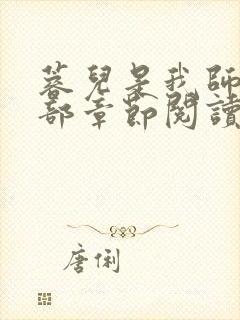 蓉兒是我師
部章節閱讀
唐俐